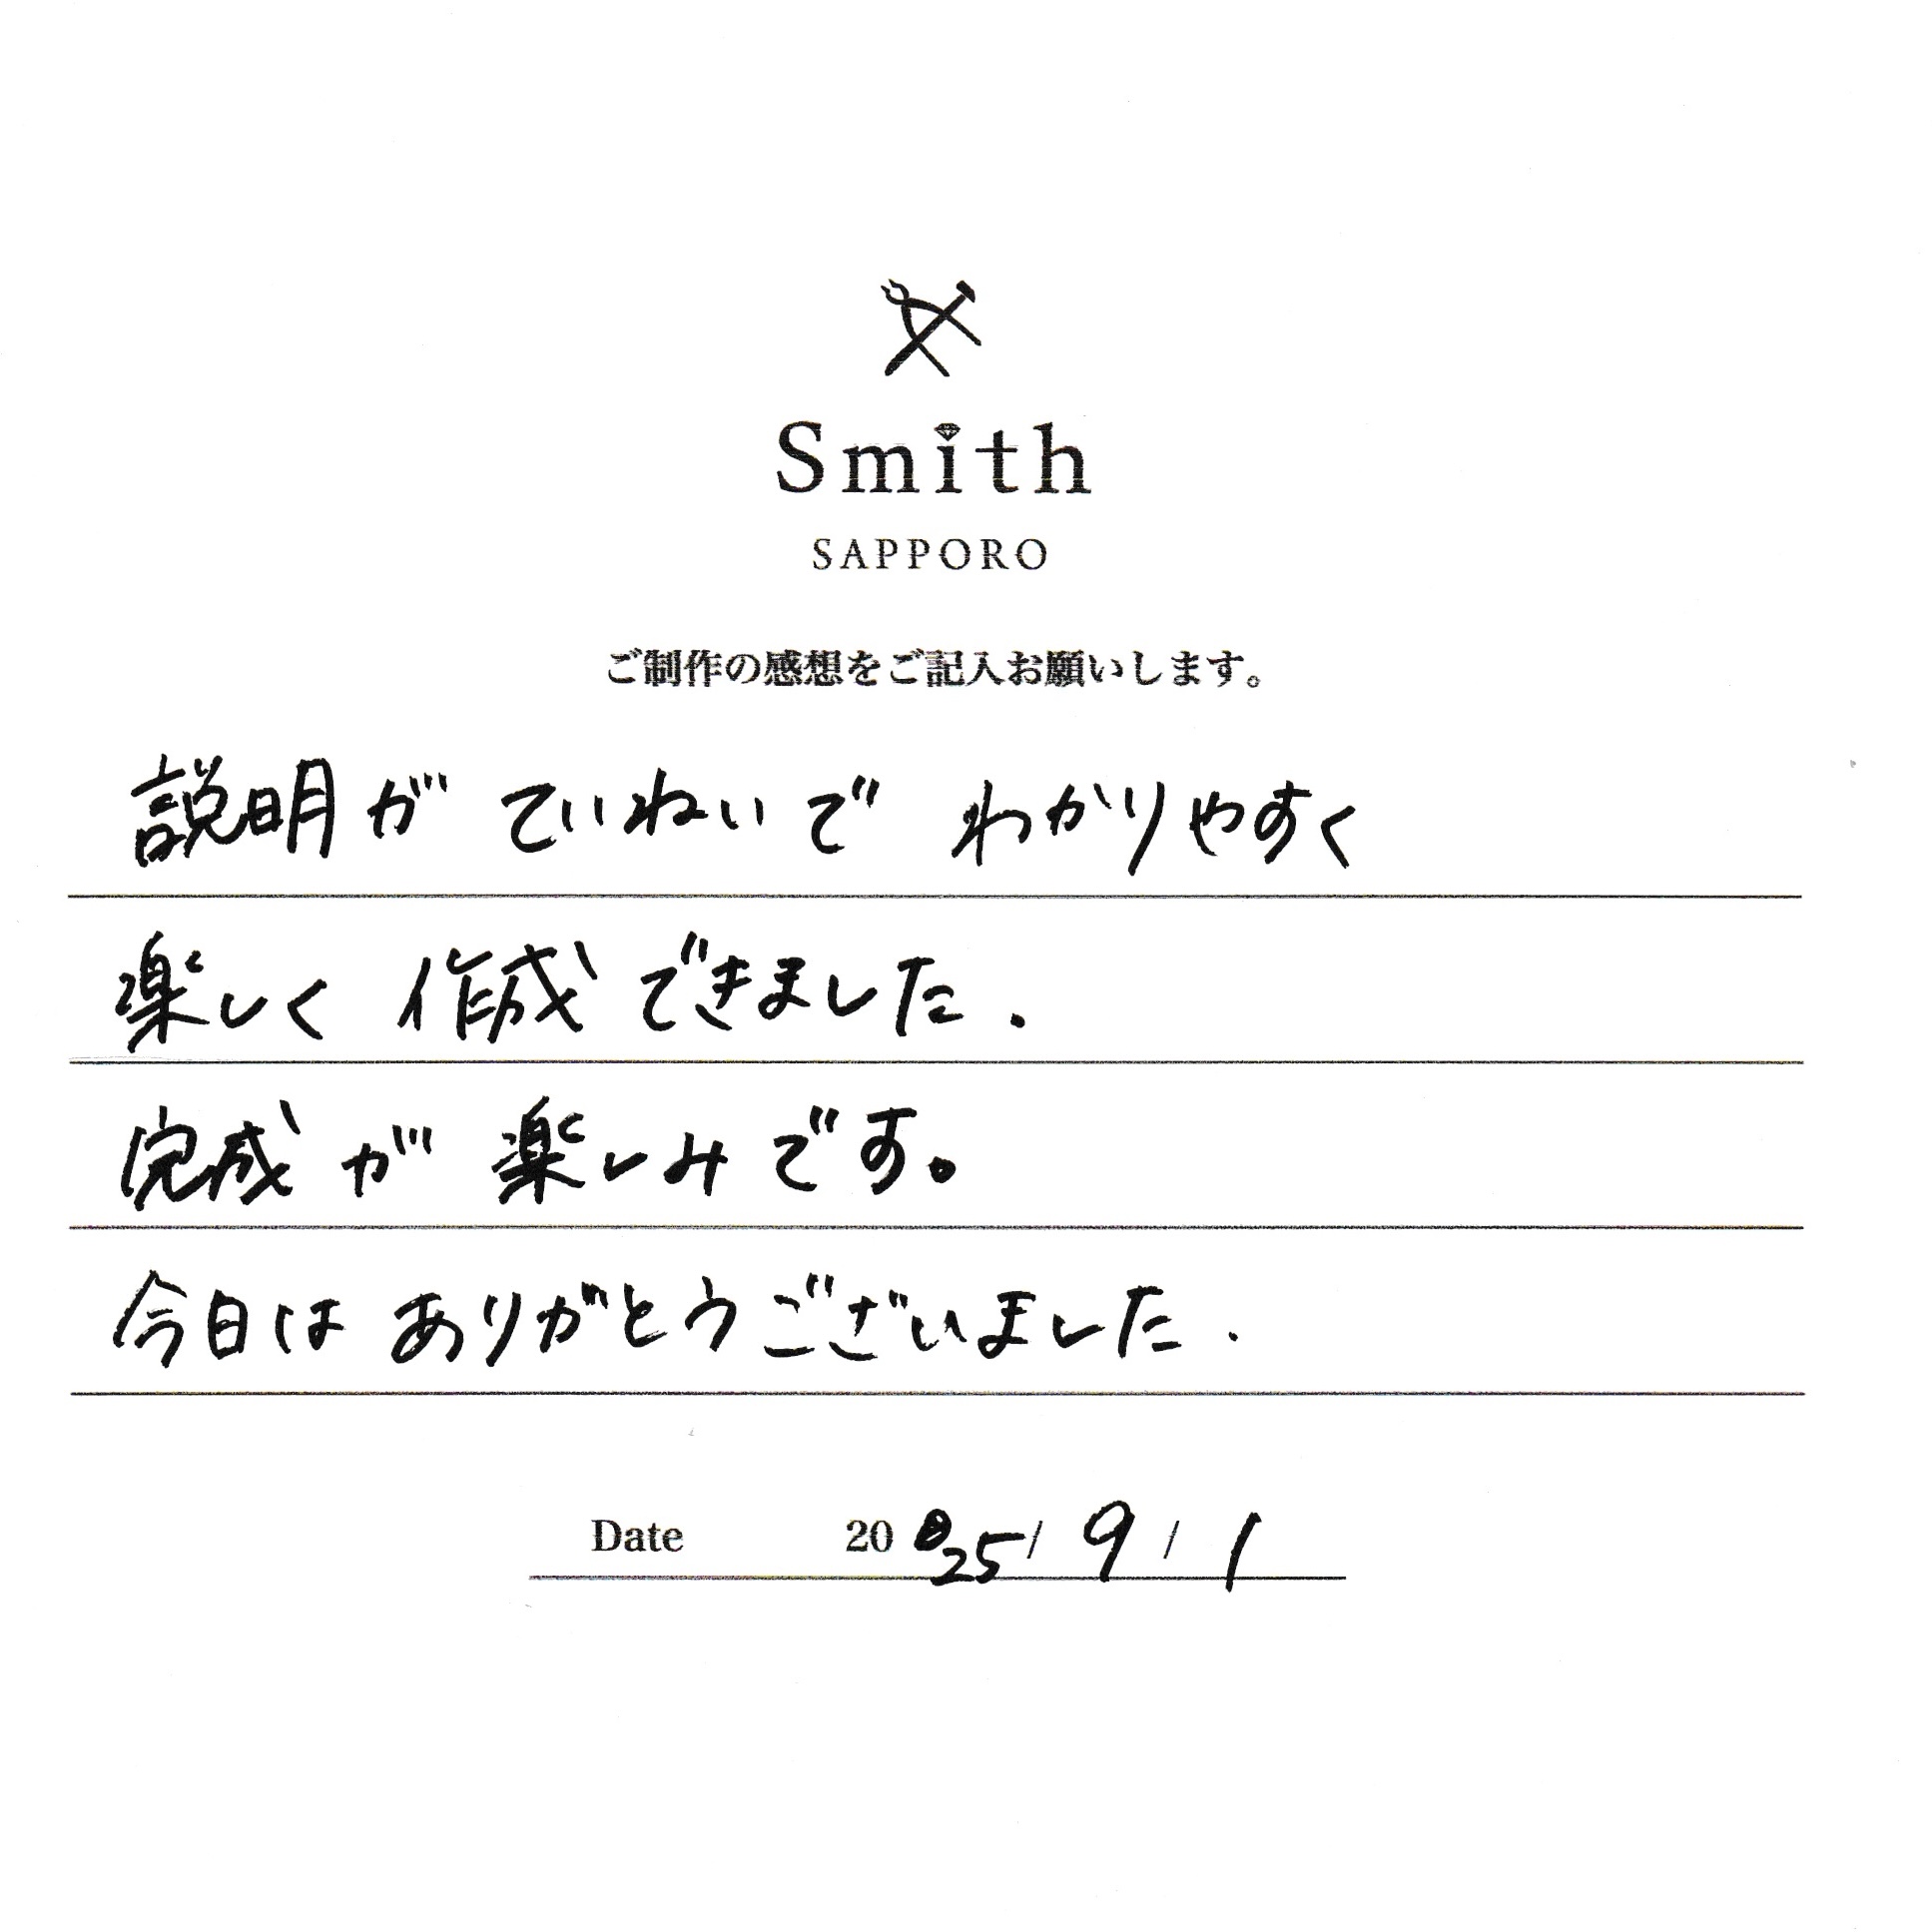 Smith
SAPPORO
ご制作の感想をご記入お願いします。
説明が ていねいで わかりやすく
楽しく 作成 できました.
完成が 楽しみです。
今日は ありがとうございました.
Date 2025/9/1